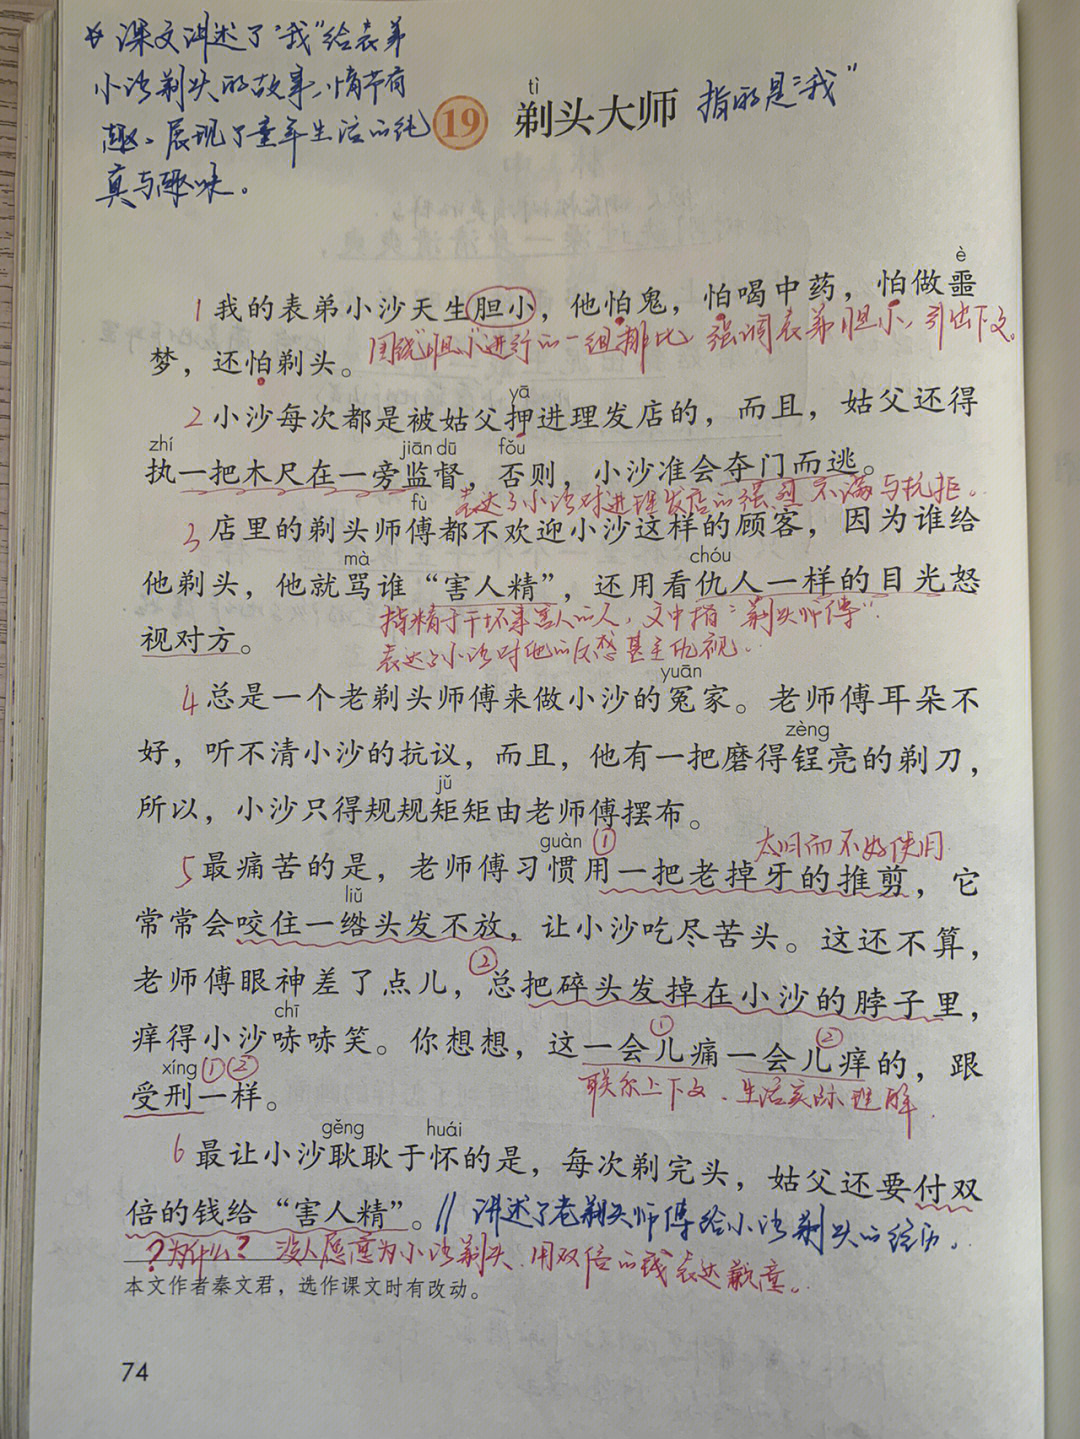 * 课文讲述了“我”给表弟
小沙剃头的故事，情节有
趣。展现了童年生活的纯
真与趣味。
tì
19 剃头大师 指的是“我”
è
1 我的表弟小沙天生胆小，他怕鬼，怕喝中药，怕做噩
围绕“胆小”进行的一组排比，强调表弟胆小，引出下文。
梦，还怕剃头。
yā
2 小沙每次都是被姑父押进理发店的，而且，姑父还得
zhí jiān dū fǒu
执一把木尺在一旁监督，否则，小沙准会夺门而逃。
表达了小沙对进理发店的强烈不满与抗拒。
fù
3 店里的剃头师傅都不欢迎小沙这样的顾客，因为谁给
mà chóu
他剃头，他就骂谁“害人精”，还用看仇人一样的目光怒
指精于干坏事害人的人，文中指“剃头师傅”
视对方。
表达了小沙对他的反感甚至仇视。
yuān
4 总是一个老剃头师傅来做小沙的冤家。老师傅耳朵不
zèng
好，听不清小沙的抗议，而且，他有一把磨得锃亮的剃刀，
jǔ
所以，小沙只得规规矩矩由老师傅摆布。
guàn ① 太旧而不好使用
5 最痛苦的是，老师傅习惯用一把老掉牙的推剪，它
liǔ
常常会咬住一绺头发不放，让小沙吃尽苦头。这还不算，
②
老师傅眼神差了点儿，总把碎头发掉在小沙的脖子里，
chī ① ②
痒得小沙哧哧笑。你想想，这一会儿痛一会儿痒的，跟
xíng ① ②
受刑一样。
联系上下文、生活实际理解
gěng huái
6 最让小沙耿耿于怀的是，每次剃完头，姑父还要付双
倍的钱给“害人精”。// 讲述了老剃头师傅给小沙剃头的经历。
？为什么？没人愿意为小沙剃头，用双倍的钱表达歉意。
本文作者秦文君，选作课文时有改动。
74